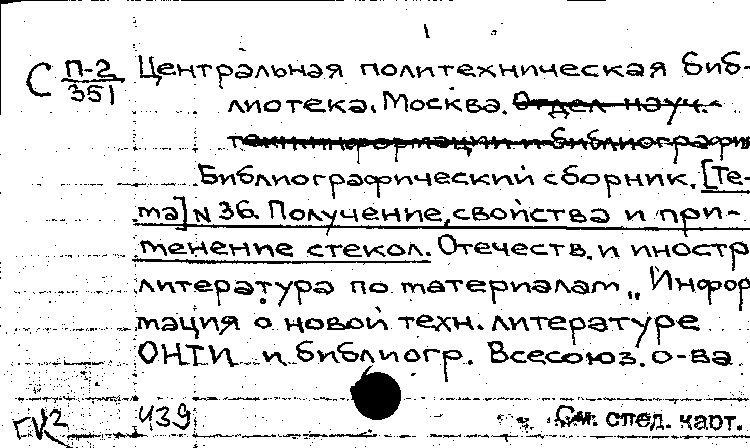 С П-2/351 Центральная политехническая биб-
лиотека. Москва. Отдел науч.-
техн. информации и библиографи
Библиографический сборник. [Те-
ма] N 36. Получение, свойства и при-
менение стекол. Отечеств. и иностр
литература по материалам „Инфор
мация о новой техн. литературе
ОНТИ и библиогр. Всесоюз. о-ва
ГК2 439 См. след. карт.